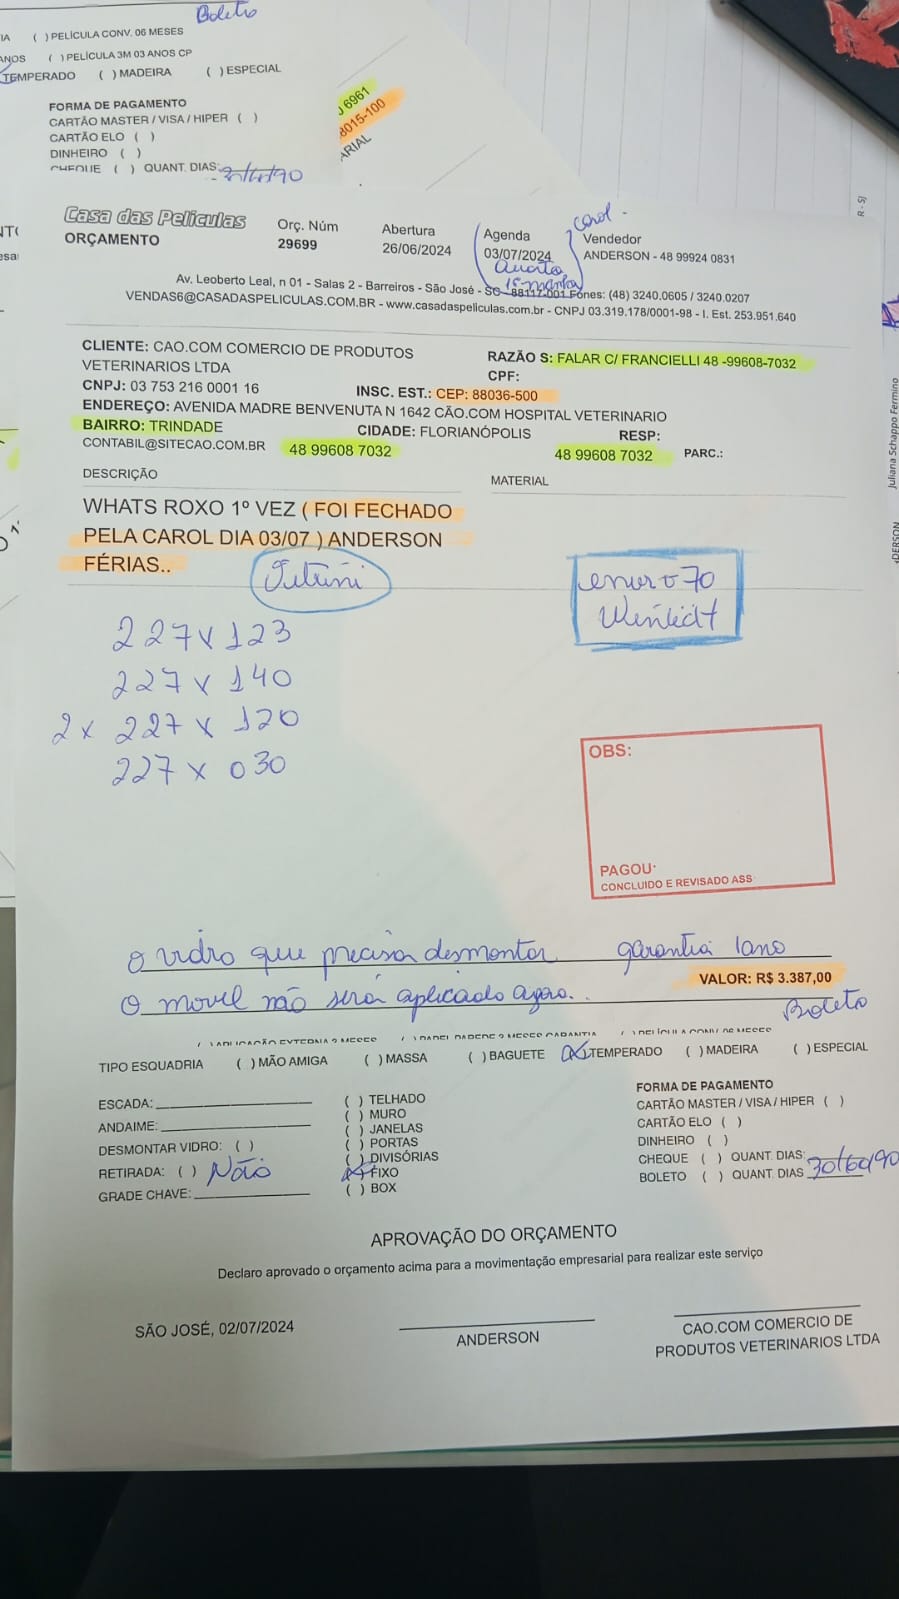 Boleto
( ) PELÍCULA CONV. 06 MESES
ANOS ( ) PELÍCULA 3M 03 ANOS CP
TEMPERADO ( ) MADEIRA ( ) ESPECIAL
FORMA DE PAGAMENTO
CARTÃO MASTER / VISA / HIPER ( )
CARTÃO ELO ( )
DINHEIRO ( )
CHEQUE ( ) QUANT. DIAS:
6961
8015-100
ARIAL
Casa das Películas
ORÇAMENTO
Orç. Núm
29699
Abertura
26/06/2024
Agenda
03/07/2024
Quarta
1ª manhã
Carol -
Vendedor
ANDERSON - 48 99924 0831
Av. Leoberto Leal, n 01 - Salas 2 - Barreiros - São José - SC - 88117-001 Fones: (48) 3240.0605 / 3240.0207
VENDAS6@CASADASPELICULAS.COM.BR - www.casadaspeliculas.com.br - CNPJ 03.319.178/0001-98 - I. Est. 253.951.640
CLIENTE: CAO.COM COMERCIO DE PRODUTOS
VETERINARIOS LTDA
RAZÃO S: FALAR C/ FRANCIELLI 48 -99608-7032
CPF:
CNPJ: 03 753 216 0001 16 INSC. EST.: CEP: 88036-500
ENDEREÇO: AVENIDA MADRE BENVENUTA N 1642 CÃO.COM HOSPITAL VETERINARIO
BAIRRO: TRINDADE CIDADE: FLORIANÓPOLIS RESP:
CONTABIL@SITECAO.COM.BR 48 99608 7032 48 99608 7032 PARC.:
DESCRIÇÃO MATERIAL
WHATS ROXO 1º VEZ ( FOI FECHADO
PELA CAROL DIA 03/07 ) ANDERSON
FÉRIAS..
227 x 123
227 x 140
2 x 227 x 120
227 x 030
OBS:
PAGOU:
CONCLUIDO E REVISADO ASS:
o vidro que precisa desmontar garantia 1 ano
VALOR: R$ 3.387,00
O movel não será aplicado agora..
Boleto
( ) APLICAÇÃO EXTERNA 3 MESES ( ) PAPEL PAREDE 3 MESES GARANTIA ( ) PELÍCULA CONV. 06 MESES
TIPO ESQUADRIA ( ) MÃO AMIGA ( ) MASSA ( ) BAGUETE (X) TEMPERADO ( ) MADEIRA ( ) ESPECIAL
ESCADA:
ANDAIME:
DESMONTAR VIDRO: ( )
RETIRADA: ( ) Não
GRADE CHAVE:
( ) TELHADO
( ) MURO
( ) JANELAS
( ) PORTAS
( ) DIVISÓRIAS
(X) FIXO
( ) BOX
FORMA DE PAGAMENTO
CARTÃO MASTER / VISA / HIPER ( )
CARTÃO ELO ( )
DINHEIRO ( )
CHEQUE ( ) QUANT. DIAS:
BOLETO ( ) QUANT. DIAS 30/60/90
APROVAÇÃO DO ORÇAMENTO
Declaro aprovado o orçamento acima para a movimentação empresarial para realizar este serviço
SÃO JOSÉ, 02/07/2024
ANDERSON
CAO.COM COMERCIO DE
PRODUTOS VETERINARIOS LTDA
Juliana Schappo Fermino
DERSON
R - SJ